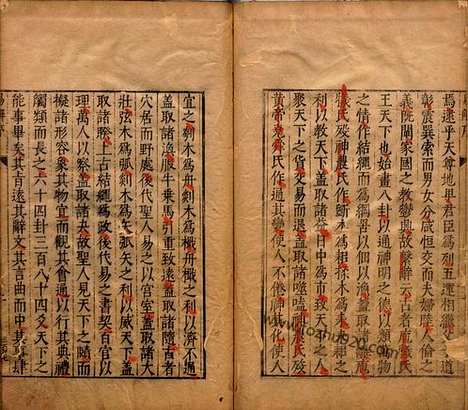 焉遂乎天尊地卑君臣爲列五運相繼父子道
彰震巽索而男女分咸恒交而夫婦睦人倫之
義旣闡家國之教爕典故繫辭云古者庖犧氏
王天下也始畫八卦以通神明之德以類萬物
之情作結繩而爲網罟以佃以漁蓋取諸離庖
犧氏殁神農氏作斵木爲耜揉木爲耒耒耨之
利以教天下蓋取諸益日中爲市致天下之民
聚天下之貨交易而退蓋取諸噬嗑神農氏殁
黄帝堯舜氏作通其變使人不倦神而化之使人
宜之刳木爲舟剡木爲檝舟檝之利以濟不通
蓋取諸渙服牛乗馬引重致遠蓋取諸隨古者
穴居而野處後代聖人易之以宮室蓋取諸大
壯弦木爲弧剡木爲矢弧矢之利以威天下蓋
取諸睽上古結繩爲政後代易之以書契百官以
理萬人以察蓋取諸夬故聖人見天下之賾而
擬諸形容象其物宜而觀其會通以行其典禮
觸類而長之六十四卦三百八十四爻天下之
能事畢矣其旨遠其辭文其言曲而中其事肆